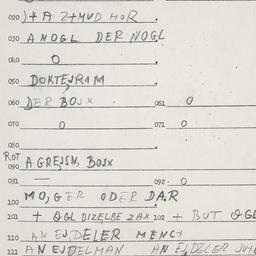 020 )+ A Z+MUD HOR
030 A NOGL DER NOGL
040 O
050 DOKTEJRIM
060 DER BOJX 061 O
070 O 071 O
080
ROT
090 A GREJSN, BOJX
091 — 092- O
100 MO,GER ODER DAR
101 + OGL DIZELBE ZAX 102 + BUT OGL
110 AN EJDELER MENC+
111 AN EJDELMAN AN EJDELER JU